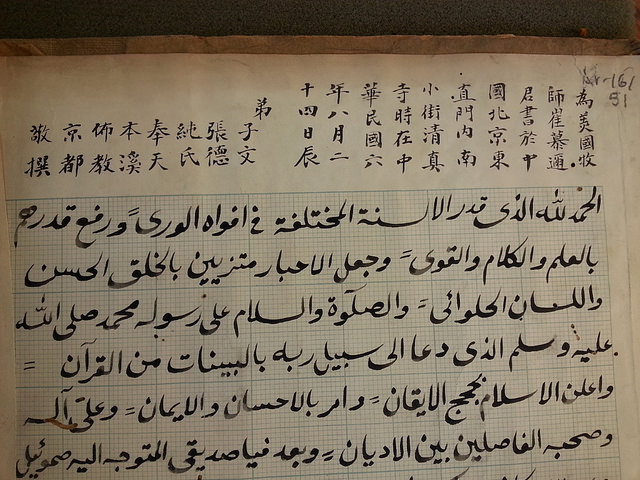 為美國牧
師崔慕邇
君書於中
國北京東
直門內南
小街清真
寺時在中
華民國六
年八月二
十四日辰
弟
子文
張德
純氏
奉天
本溪
佈教
京都
敬撰
الحمد لله الذى قدر الالسنة المختلفة فى افواه الورى ورفع قدرهم
بالعلم والكلام والقوى = وجعل الاحبار متزيين بالخلق الحسن
واللسان الحلوائى = والصلوة والسلام على رسوله محمد صلى الله
عليه وسلم الذى دعا الى سبيل ربه بالبينات من القرآن =
واعلن الاسلام بحجج الايقان = وامر بالاحسان والايمان = وعلى آله
وصحبه الفاصلين بين الاديان = وبعد فيا صديقى المتوجه اليه صموئيل